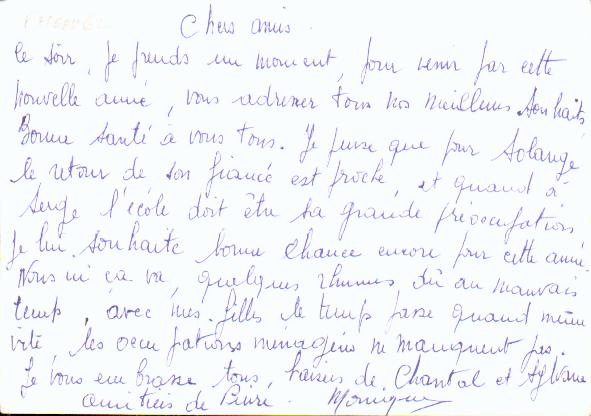 Chers amis.
Ce soir, je prends un moment, pour venir par cette
nouvelle année, vous adresser tous nos meilleurs souhaits
Bonne santé à vous tous. Je pense que pour Solange
le retour de son fiancé est proche, et quand à
Serge l'école doit être sa grande préoccupations
Je lui souhaite bonne chance encore pour cette année.
Nous ici ça va, quelques rhumes dû au mauvais
temps, avec mes filles le temps passe quand même
vite, les occupations ménagères ne manquent pas.
Je vous embrasse tous, baisers de Chantal et Sylvane
amitiés de Pierre. Monique